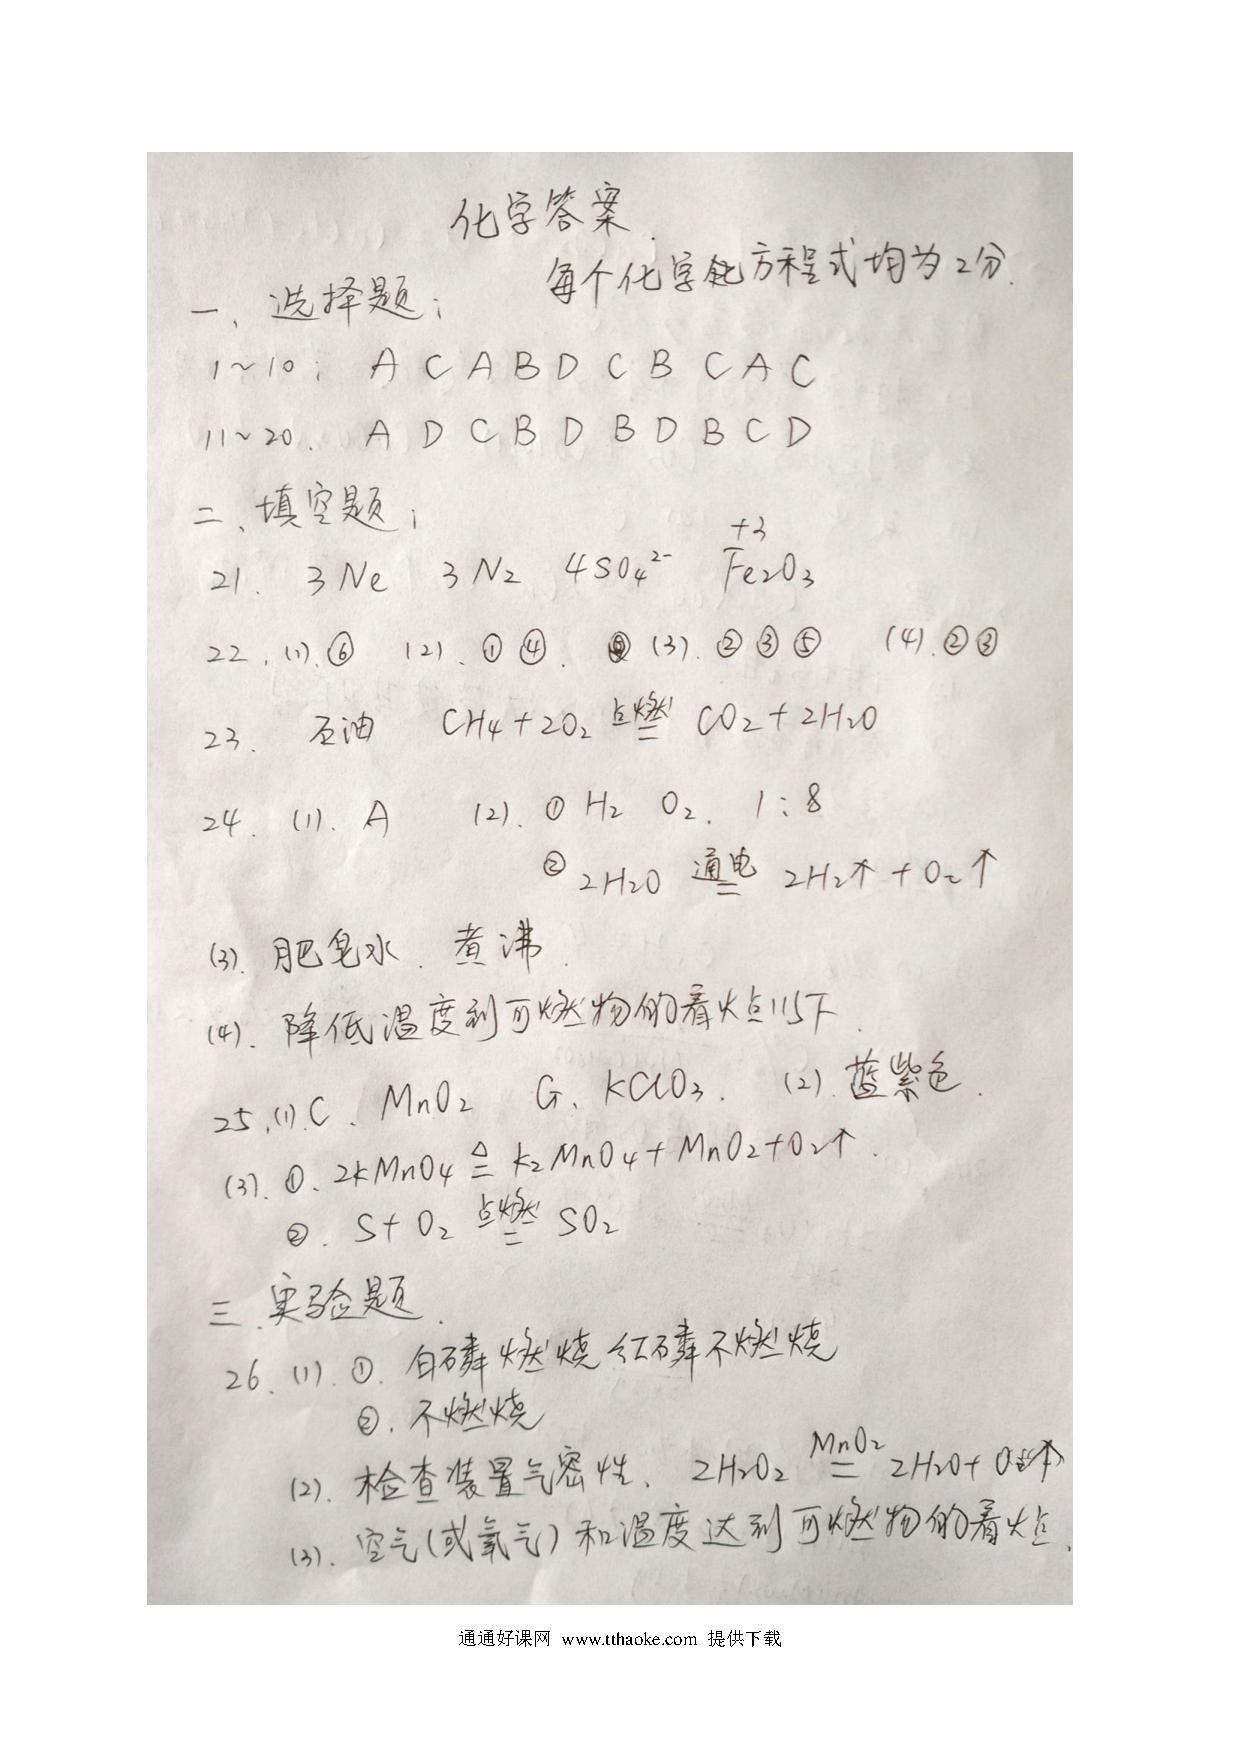 化学答案.
每个化学方程式均为2分.
一、选择题;
1~10: A C A B D C B C A C
11~20. A D C B D B D B C D
二、填空题;
21. 3Ne 3N₂ 4SO₄²⁻ Fe₂O₃ (+3)
22. (1).⑥ (2).①④. (3).②③⑤ (4).②③
23. 石油 CH₄+2O₂ 点燃= CO₂+2H₂O
24. (1). A (2). ① H₂ O₂. 1:8
② 2H₂O 通电= 2H₂↑+O₂↑
(3). 肥皂水. 煮沸.
(4). 降低温度到可燃物的着火点以下.
25.(1).C、MnO₂ G、KClO₃. (2).蓝紫色.
(3).①、2KMnO₄ △= K₂MnO₄+MnO₂+O₂↑.
②. S+O₂ 点燃= SO₂
三.实验题.
26.(1).①.白磷燃烧红磷不燃烧
②.不燃烧
(2).检查装置气密性、2H₂O₂ MnO₂= 2H₂O+O₂↑
(3).空气(或氧气)和温度达到可燃物的着火点.
通通好课网 www.tthaoke.com 提供下载